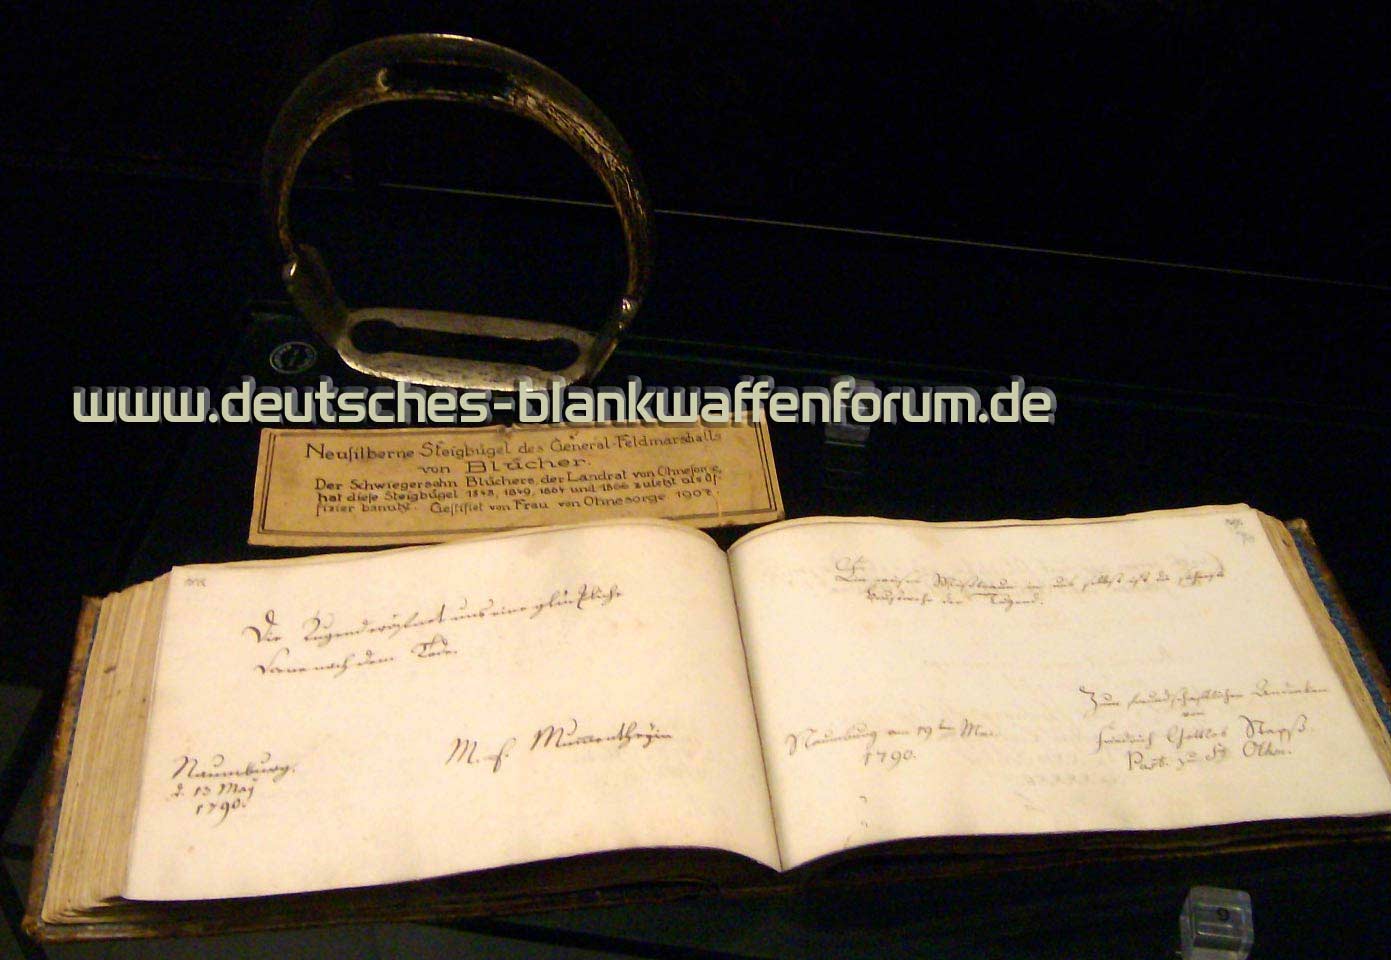 www.deutsches-blankwaffenforum.de
Neusilberne Steigbügel des General-Feldmarschalls
von Blücher.
Der Schwiegersohn Blüchers, der Landrat von Ohnesorge,
hat diese Steigbügel 1848, 1849, 1864 und 1866 zuletzt als Of-
fizier banutzt. Gestiftet von Frau von Ohnesorge 1902.
Die Tugend eröffnet uns eine glückliche
Scene nach dem Tode.
Naumburg.
d. 13 May
1790.
in uns selbst ist die
der Tugend.
Zum freundschaftlichen Andenken
von
Naumburg am 19ten Mai
1790.
Friedrich Gottlob
Past. zu St. Othm.
9